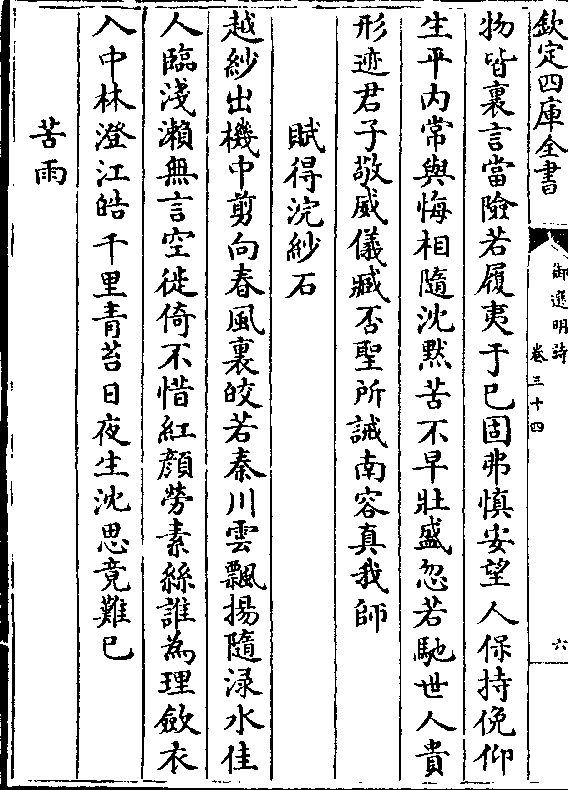 欽定四庫全書
御選明詩
卷三十四
六
物皆裏言當險若履夷于已固弗慎安望人保持俛仰
生平内常與悔相隨沈黙苦不早壯盛忽若馳世人貴
形迹君子敬威儀臧否聖所誡南容真我師
賦得浣紗石
越紗出機中剪向春風裏皎若秦川雲飄揚隨渌水佳
人臨淺瀨無言空徙倚不惜紅顔勞素絲誰為理歛衣
入中林澄江皓千里青苔日夜生沈思竟難已
苦雨